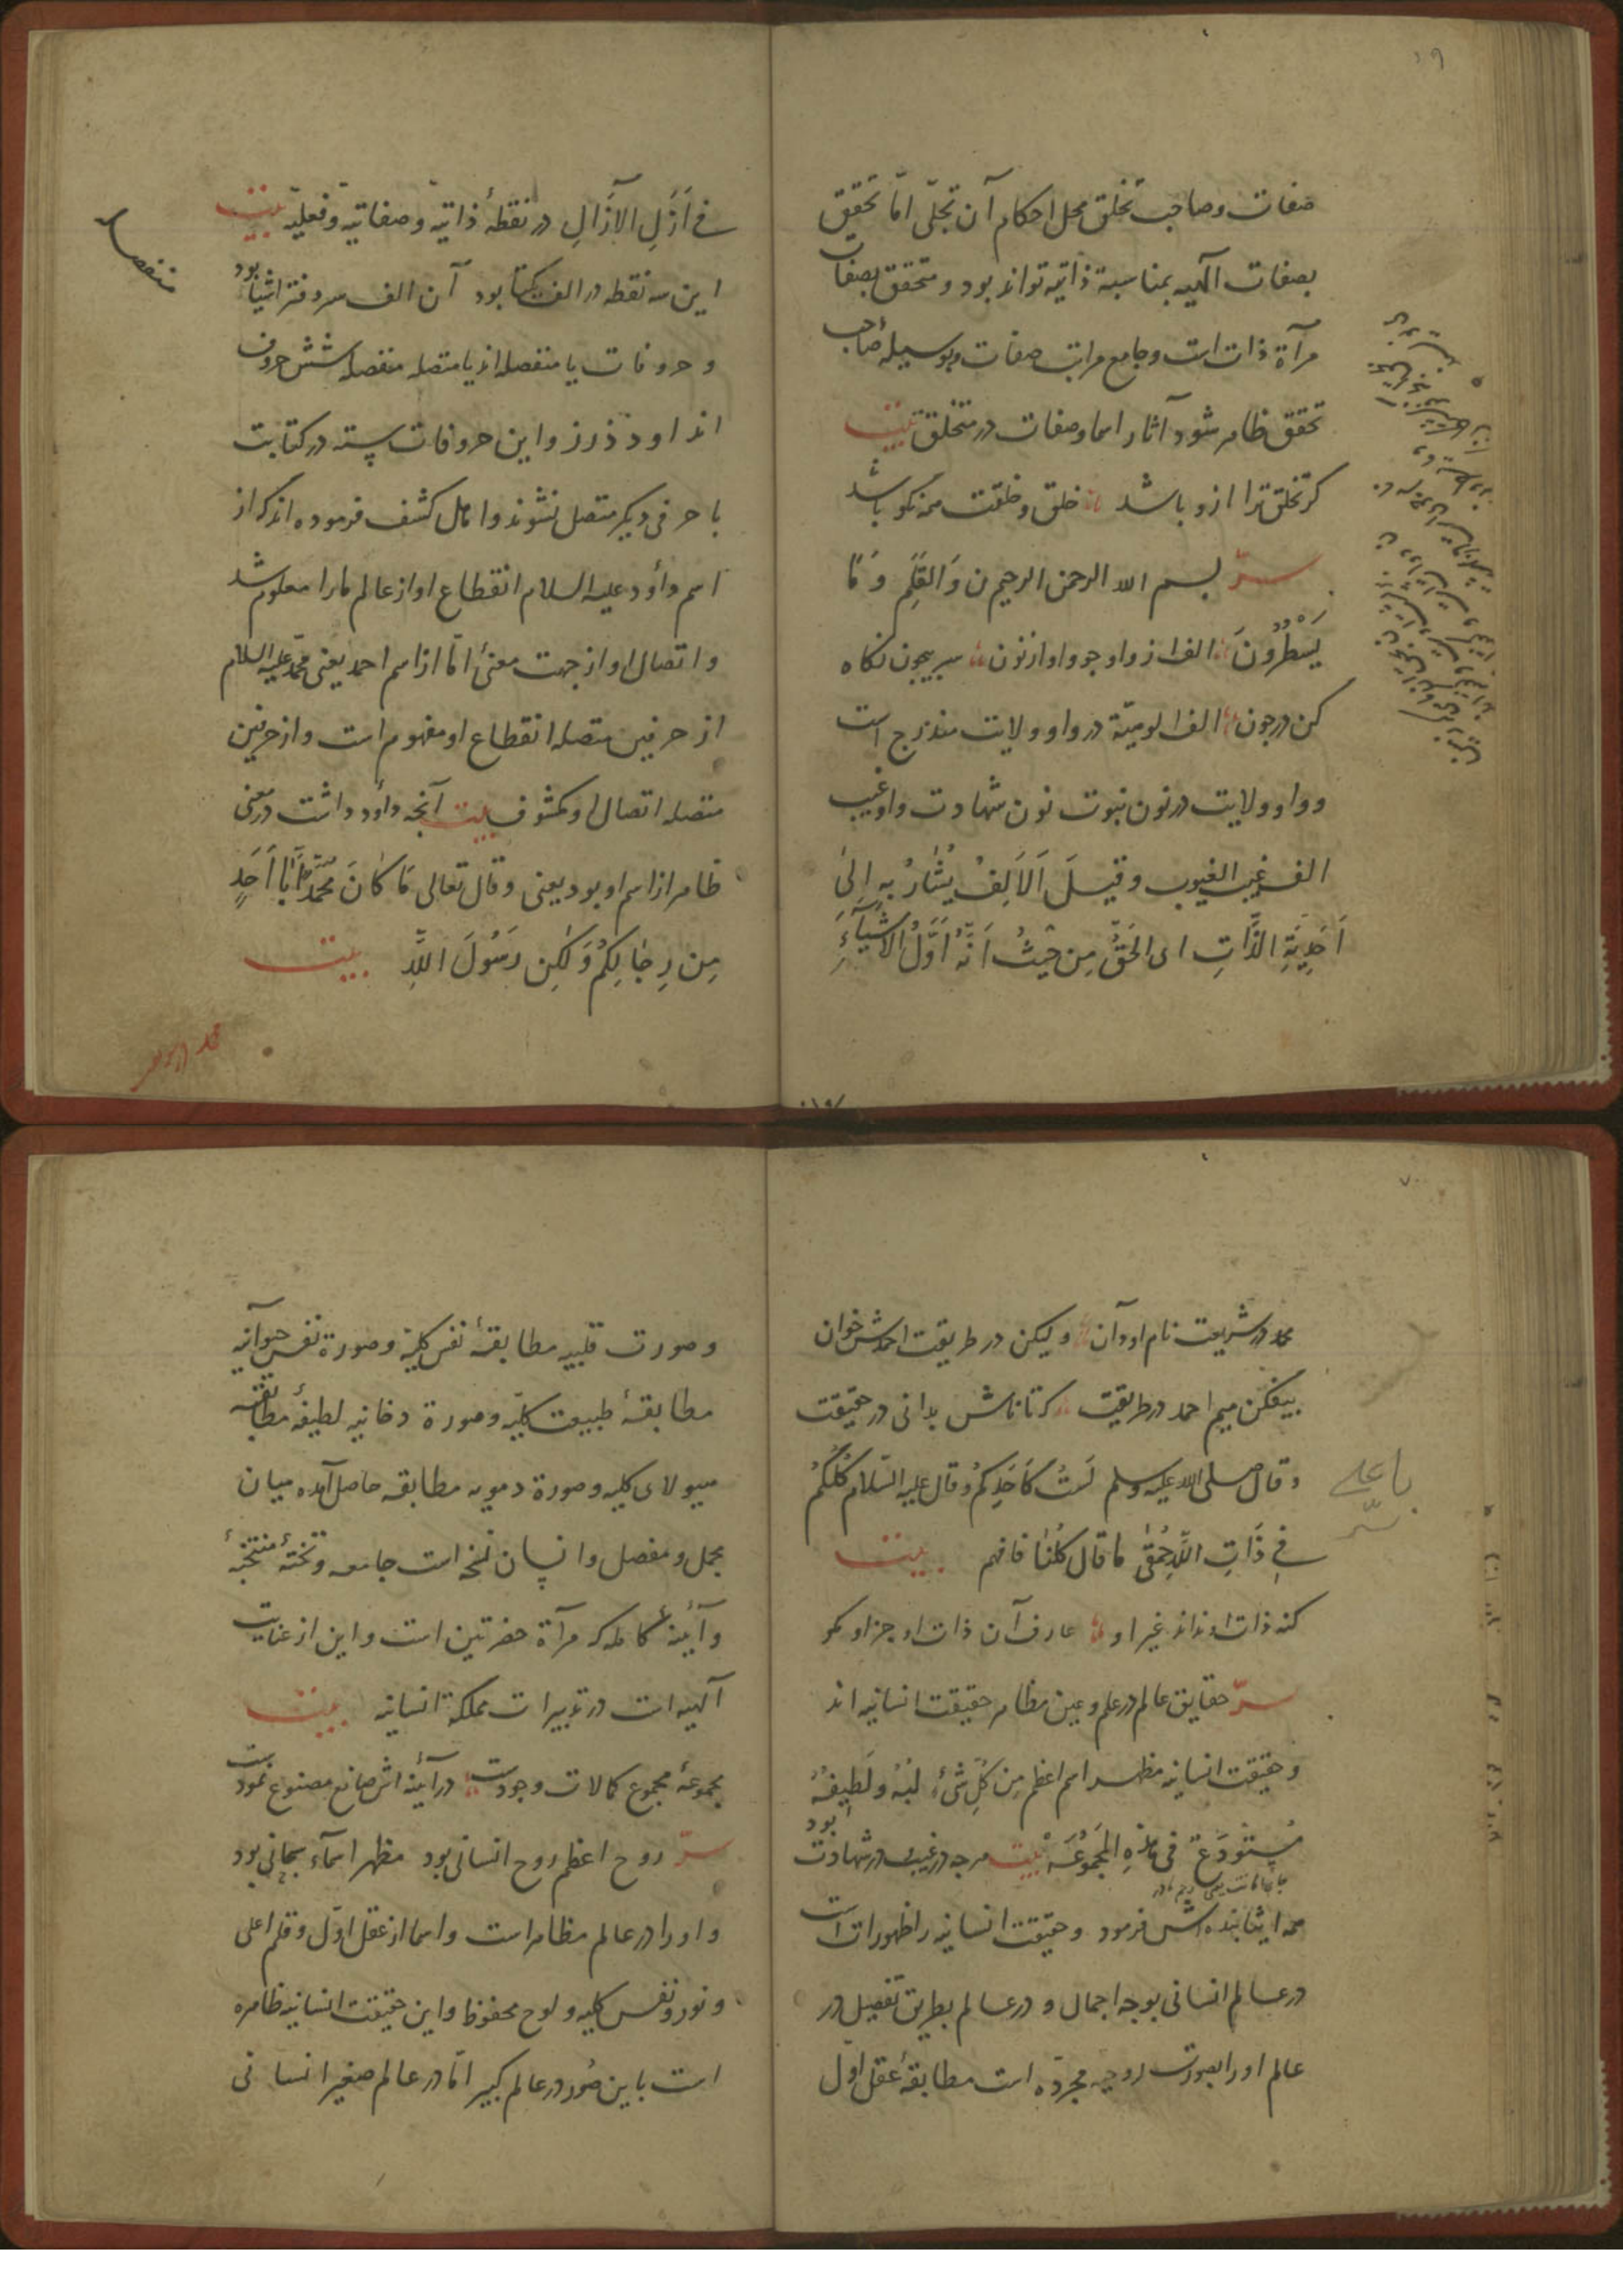 صفات و صاحب تخلق محل احکام آن تجلّی امّا تحقیق
بصفات الهیه بمناسبة ذاتیه تواند بود و متحقق بصفات
مرآة ذات است و جامع مراتب صفات و بوسیلهٔ صاحب
تحقق ظاهر شود آثار اسما و صفات در متخلق بیت
کر تخلق ترا ازو باشد خلق و خلقت همه نکو باشد
سرّ بسم الله الرحمن الرحیم ن وَالقَلَمِ وَمَا
یَسْطُرُونَ الف از واو جو واو از نون سر بیچون نکاه
کن در چون الف الوهیّة در واو ولایت مندرج است
و واو ولایت در نون نبوت نون شهادت واو غیب
الف غیب الغیوب و قیلَ اَلاَلِفُ یُشَارُ بِهِ اِلیٰ
اَحَدِیَّةِ الذَّاتِ ای الحَقُّ مِن حَیثُ اَنَّهُ اَوَّلُ الاَشیَآءِ
فی اَزَلِ الآزَالِ در نقطهٔ ذاتیه و صفاتیه و فعلیّه بیت
این سه نقطه در الف یکتا بود آن الف سر دفتر اشیا بود
و حروفات یا منفصله اند یا متصله منفصله شش حروف
اند ا و د ذ ر ز و این حروفات سته در کتابت
با حرفی دیکر متصل نشوند و اهل کشف فرموده اند که از
اسم داؤد علیه السلام انقطاع او از عالم ما را معلوم شد
و اتصال او از جهت معنی امّا از اسم احمد یعنی محمّد علیه السلام
از حرفین متصله انقطاع او مفهوم است و از حرفین
متصله اتصال او مکشوف بیت آنچه داود داشت در معنی
ظاهر از اسم او بود یعنی و قال تعالی مَا کَانَ مُحَمَّدٌ اَبَا اَحَدٍ
مِن رِجَالِکُم وَلٰکِن رَسُولَ اللَّهِ بیت
محمد در شریعت
محمد در شریعت نام او دان ولیکن در طریقت احمدش خوان
بیفکن میم احمد در طریقت که تا نامش بدانی در حقیقت
و قال صلی الله علیه وسلم لَستُ کَاَحَدِکُم و قال علیه السّلام کُلُّکُم
فِی ذَاتِ اللَّهِ حُمقٰی ما قال کُلُّنَا فافهم بیت
کنه ذات او نداند غیر او عارف آن ذات او جز او مکو
سرّ حقایق عالم در علم و عین مظاهر حقیقت انسانیه اند
و حقیقت انسانیه مظهر اسم اعظم مِن کُلِّ شَیءٍ لُبُّهُ وَلَطِیفُهُ
مُستَودَعٌ فی هٰذِهِ المَجمُوعَه بیت هرچه در غیب و در شهادت بود
همه ایثار بنده اش فرمود و حقیقت انسانیه را ظهورات است
در عالم انسانی بوجه اجمال و در عالم بطریق تفصیل در
عالم او را بصورت روحیه مجرّده است مطابقهٔ عقل اوّل
و صورت قلبیه مطابقهٔ نفس کلیّه و صورة نفس حیوانیه
مطابقهٔ طبیعت کلیّه و صورة دخانیه لطیفه مطابقهٔ
هیولای کلیه و صورة دمویه مطابقه حاصل آمده میان
مجمل و مفصل و انسان نسخه است جامعه و نخبهٔ منتخبهٔ
و آئینهٔ کامله که مرآة حضرتین است و این از عنایت
الهیه است در تدبیرات مملکة انسانیه بیت
مجموعهٔ مجموع کمالات وجودست در آئینه اش صانع مصنوع نمودست
سرّ روح اعظم روح انسانی بود مظهر اسمآء سبحانی بود
و او را در عالم مظاهر است و اسما از عقل اوّل و قلم اعلی
و نور و نفس کلیه و لوح محفوظ و این حقیقت انسانیه ظاهره
است باین صُوَر در عالم کبیر امّا در عالم صغیر انسانی